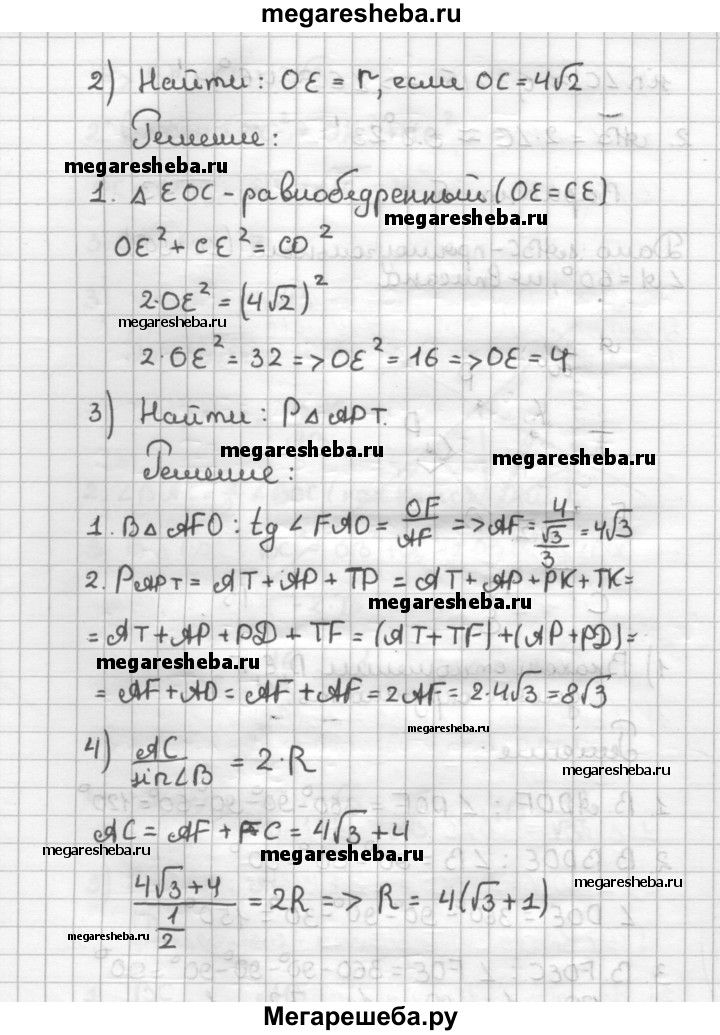 megaresheba.ru
2) Найти: OE = r, если OC = 4√2
Решение:
megaresheba.ru
1. △ EOC - равнобедренный (OE = CE)
megaresheba.ru
OE² + CE² = CO²
2·OE² = (4√2)²
megaresheba.ru
2·OE² = 32 => OE² = 16 => OE = 4
3) Найти: P△APT.
megaresheba.ru
megaresheba.ru
Решение:
1. В △ AFO: tg ∠ FAO = OF/AF => AF = 4/(√3/3) = 4√3
2. PAPT = AT + AP + TP = AT + AP + PK + TK =
megaresheba.ru
= AT + AP + PD + TF = (AT + TF) + (AP + PD) =
megaresheba.ru
= AF + AD = AF + AF = 2AF = 2·4√3 = 8√3
megaresheba.ru
4) AC/sin∠B = 2·R
megaresheba.ru
AC = AF + FC = 4√3 + 4
megaresheba.ru
megaresheba.ru
(4√3 + 4)/(1/2) = 2R => R = 4(√3 + 1)
megaresheba.ru
megaresheba.ru
Мегарешеба.ру